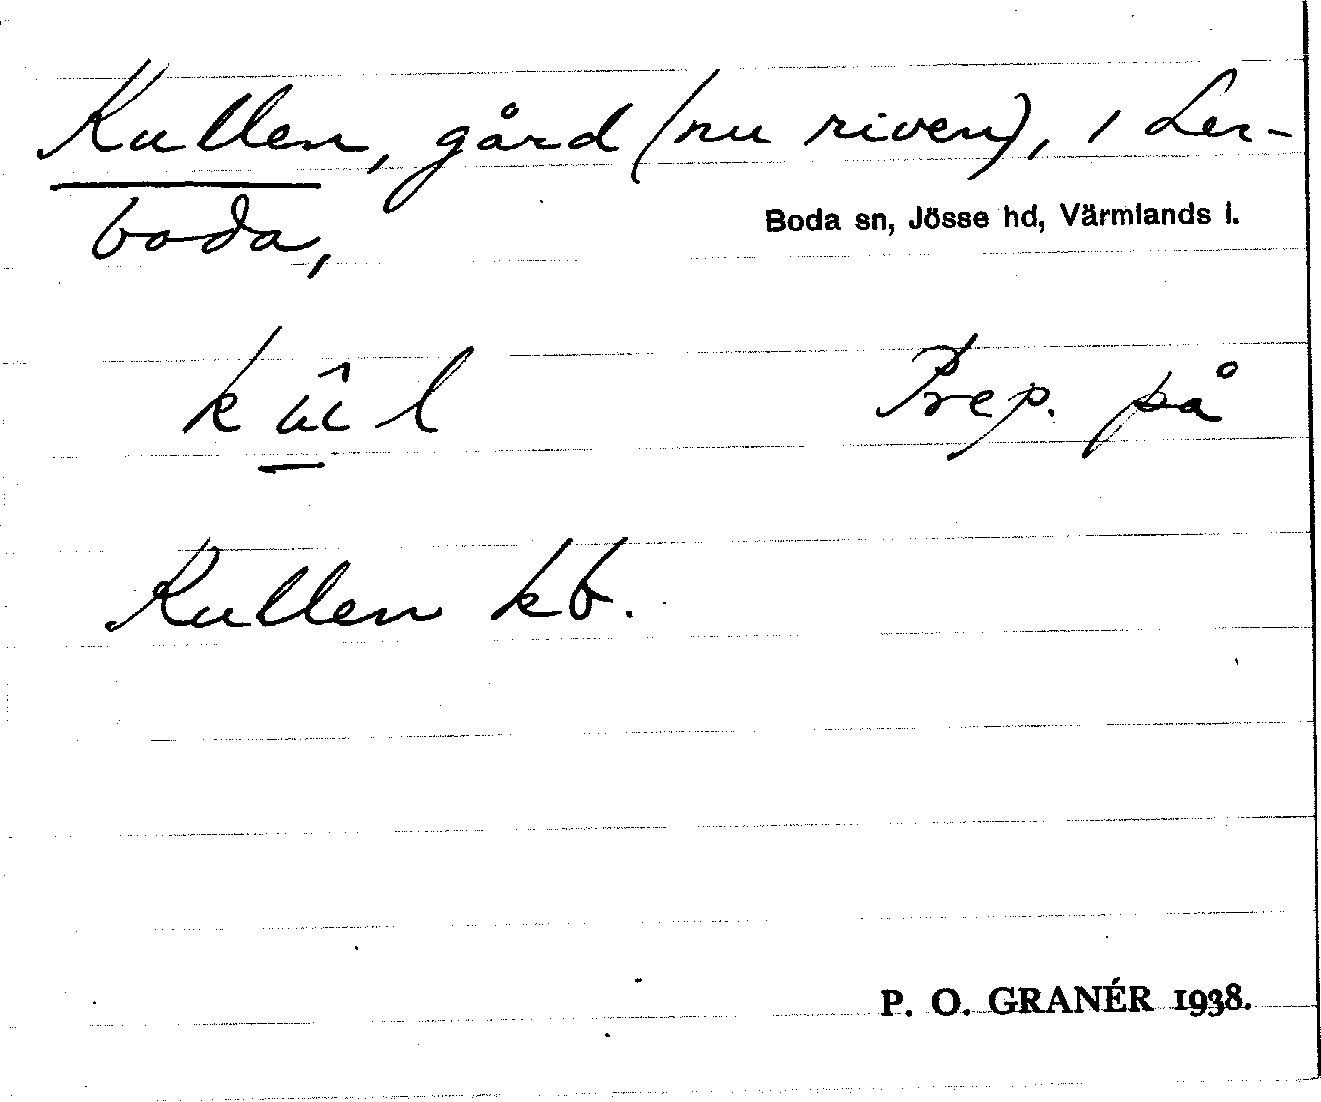 Kullen, gård (nu riven), i Ler-
boda,
Boda sn, Jösse hd, Värmlands l.
kûl Prep. på
Kullen kb.
P. O. GRANÉR 1938.